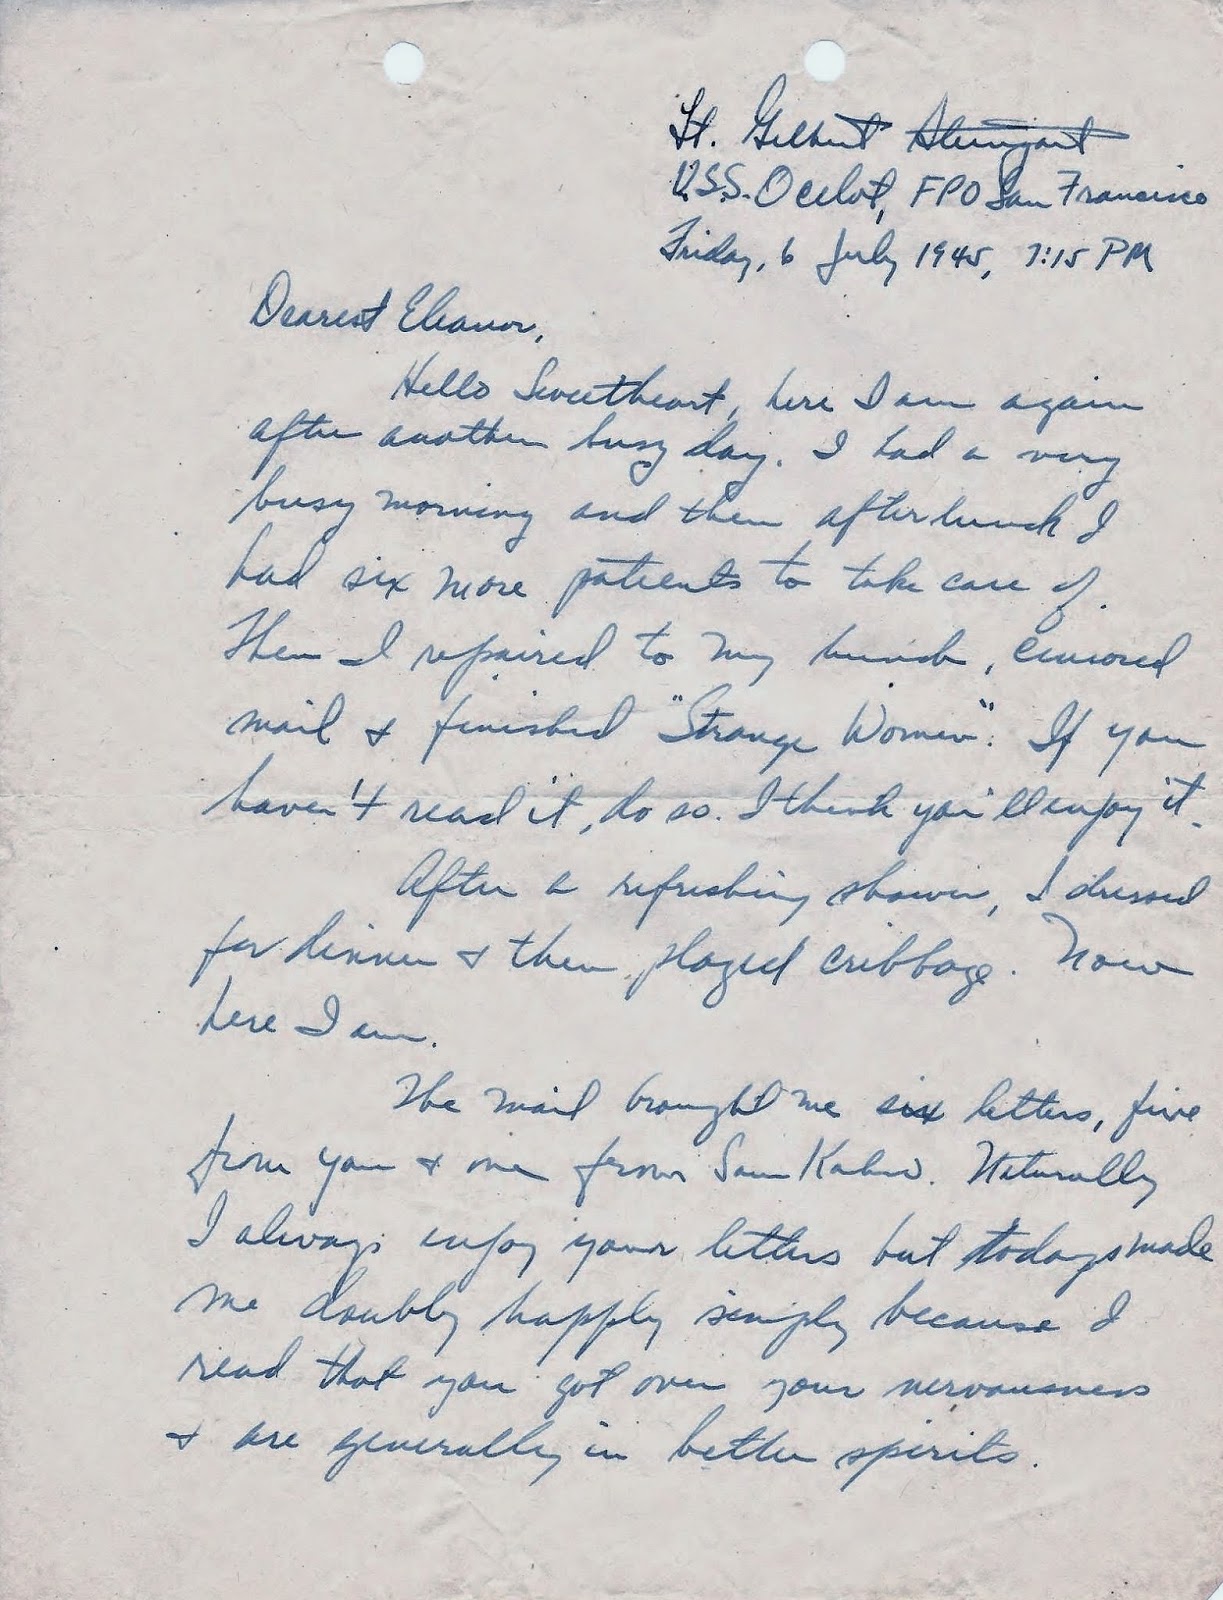 Lt. Gilbert Steingart
U.S.S. Ocelot, FPO San Francisco
Friday, 6 July 1945, 7:15 PM
Dearest Eleanor,
Hello Sweetheart, here I am again
after another busy day. I had a very
busy morning and then after lunch I
had six more patients to take care of.
Then I repaired to my bunk, censored
mail & finished "Strange Women". If you
haven't read it, do so. I think you'll enjoy it.
After a refreshing shower, I dressed
for dinner & then played cribbage. Now
here I am.
The mail brought me six letters, five
from you & one from Sam Kahn. Naturally
I always enjoy your letters but todays made
me doubly happy simply because I
read that you got over your nervousness
& are generally in better spirits.